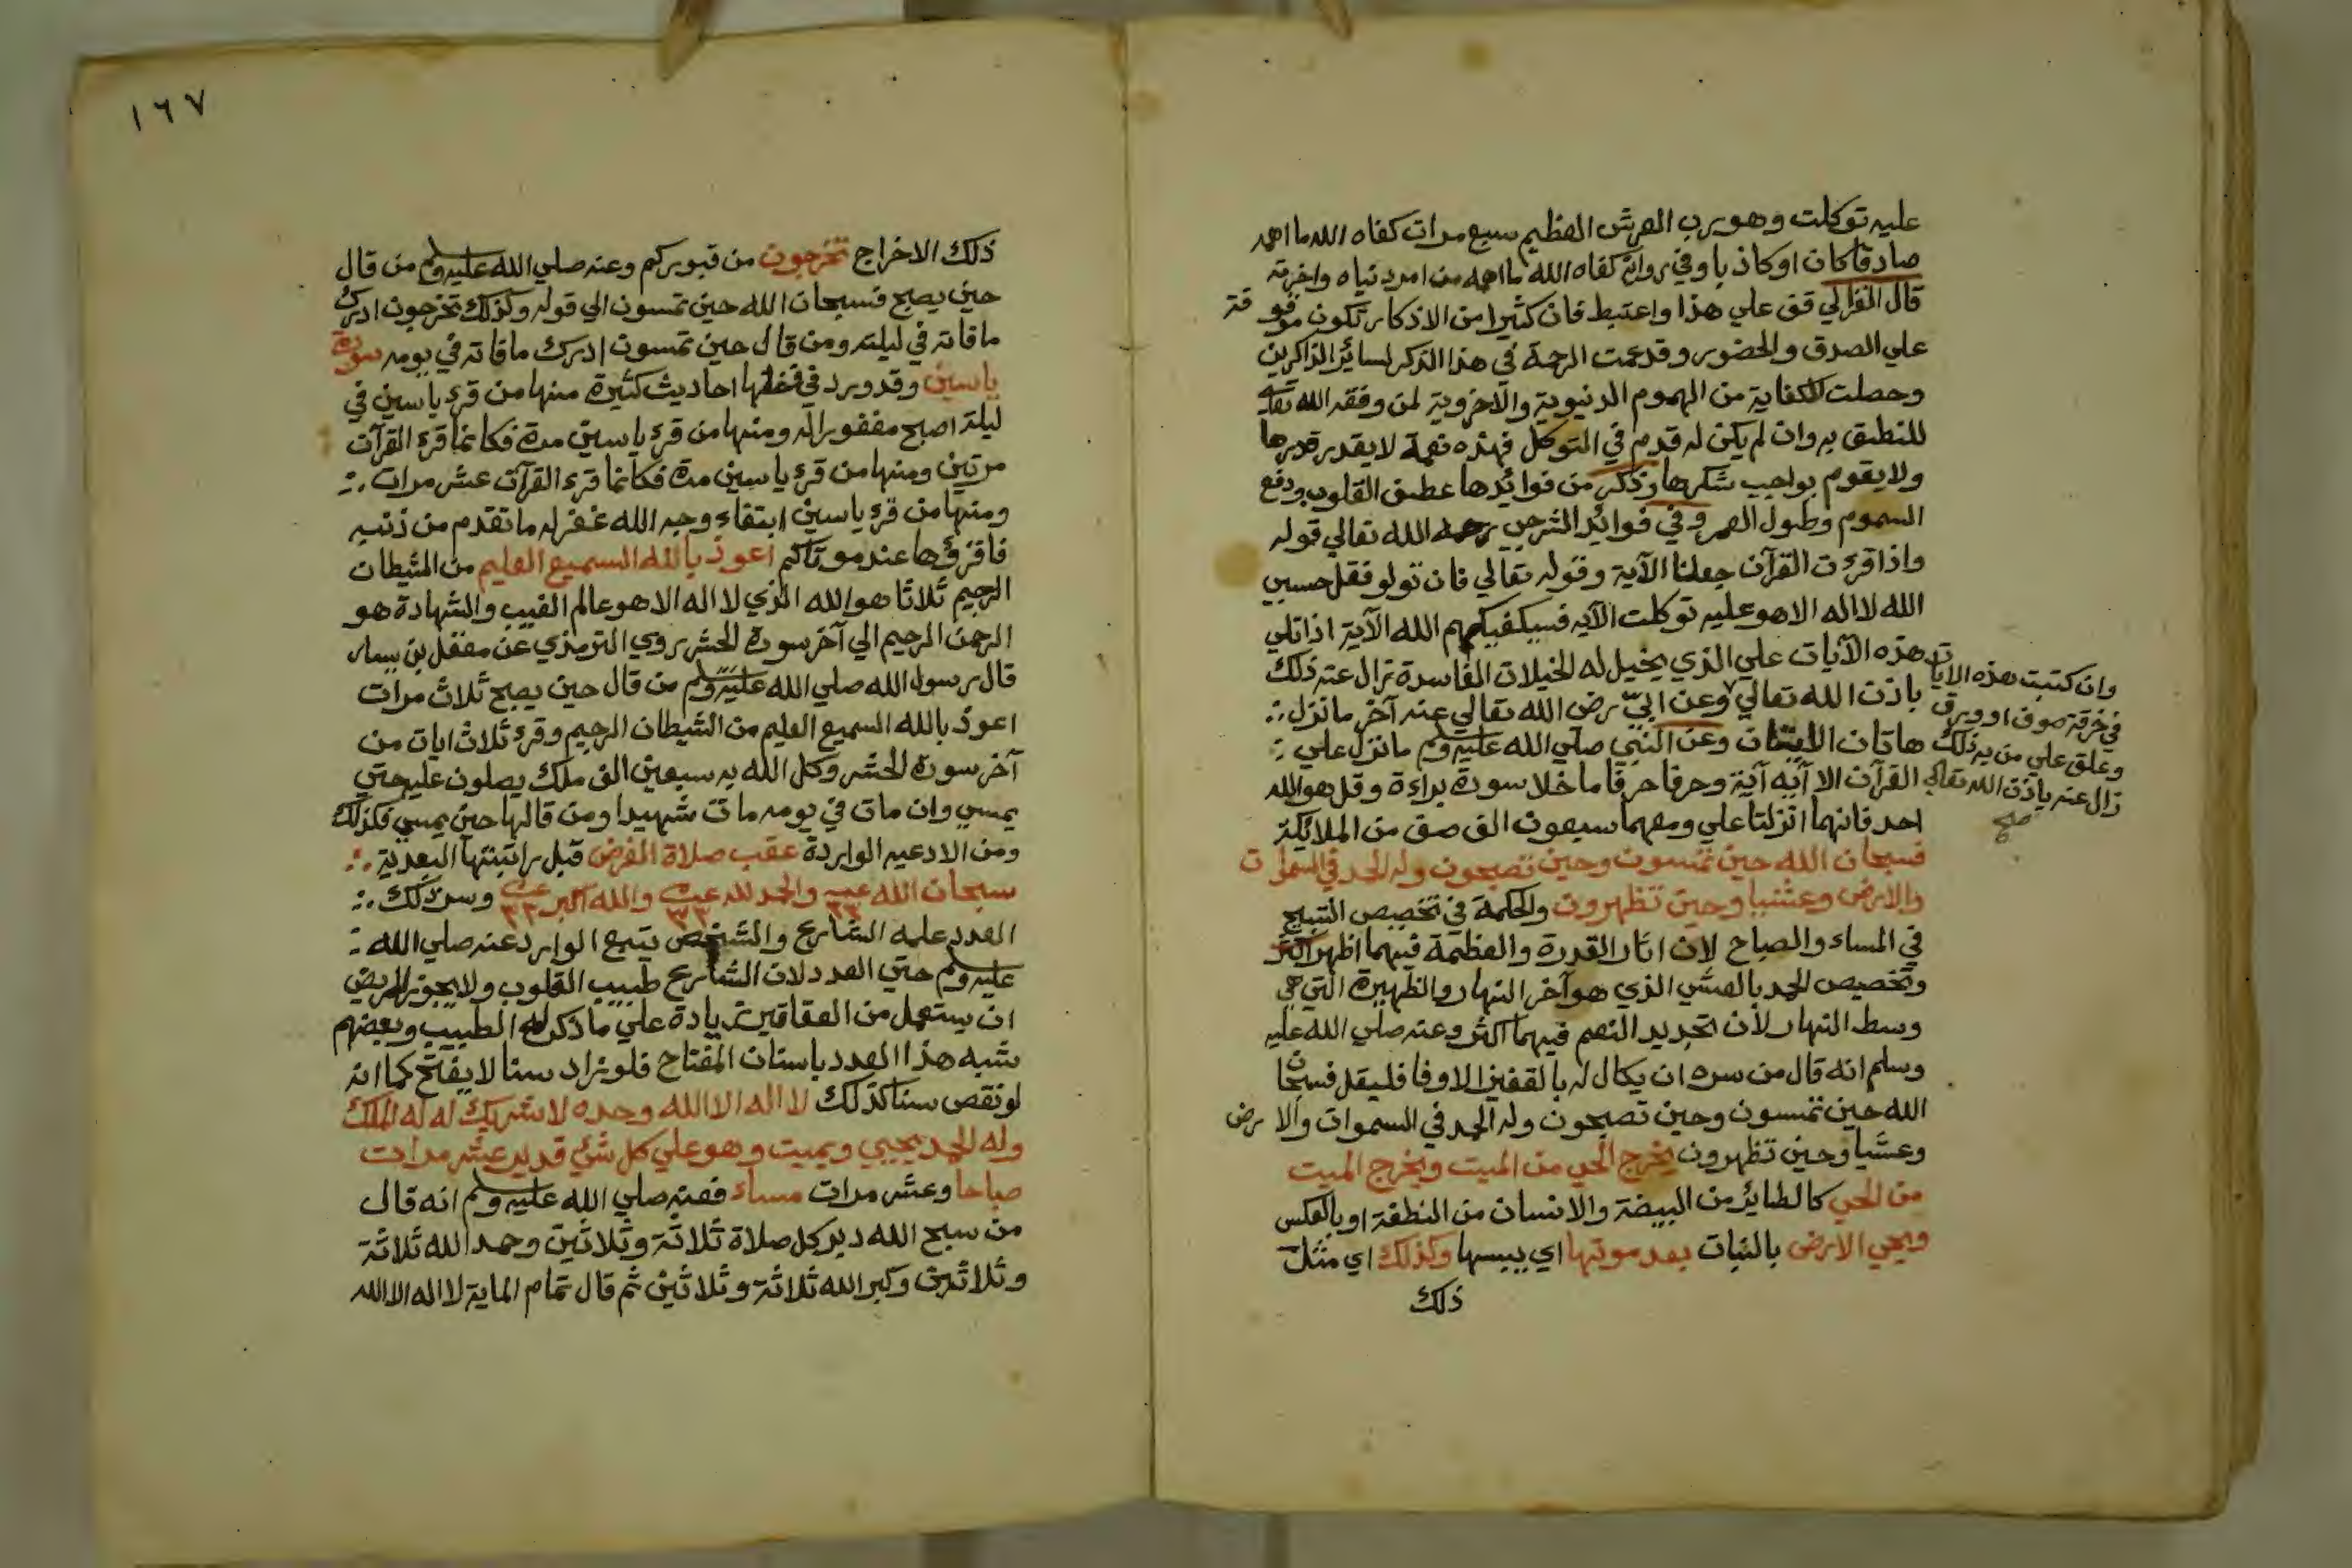 عليه توكلت وهو رب العرش العظيم سبع مرات كفاه الله ما اهمه
صادقا كان او كاذبا وفي رواية كفاه الله ما اهمه من امر دنياه واخرته
قال الغزالي قف علي هذا واغتبط فان كثيرا من الاذكار تكون موقوفة
علي الصدق والحضور وقد عمت الرحمة في هذا الذكر لسائر الذاكرين
وحصلت الكفاية من الهموم الدنيوية والاخروية لمن وفقه الله تعالى
للنطق به وان لم يكن له قدم في التوكل فهذه نعمة لا يقدر قدرها
ولا يقوم بواجب شكرها وذكر من فوائدها عطف القلوب ودفع
السموم وطول العمر وفي فوائد الشرجي رحمه الله تعالي قوله
واذا قرءت القرآن جعلنا الآية وقوله تعالي فان تولو فقل حسبي
الله لا اله الا هو عليه توكلت الآية فسيكفيكهم الله الآية اذا تلي
هذه الآيات علي الذي يخيل له الخيلات الفاسدة تزال عنه ذلك
باذن الله تعالي وعن ابيّ رض الله تعالي عنه آخر ما نزل
هاتان الايتان وعن النبي صلي الله عليه وسلم ما نزل علي
القرآن الا آية آية وحرفا حرفا ما خلا سورة براءة وقل هو الله
احد فانهما انزلتا علي ومعهما سبعون الف صف من الملائكة
فسبحان الله حين تمسون وحين تصبحون وله الحمد في السموات
والارض وعشيا وحين تظهرون والحكمة في تخصيص التسبيح
في المساء والصباح لان اثار القدرة والعظمة فيهما اظهر اكثر
وتخصيص الحمد بالعشي الذي هو آخر النهار والظهيرة التي هي
وسط النهار لان تجديد النعم فيهما اكثر وعنه صلي الله عليه
وسلم انه قال من سره ان يكال له بالقفيز الاوفا فليقل فسبحان
الله حين تمسون وحين تصبحون وله الحمد في السموات والارض
وعشيا وحين تظهرون يخرج الحي من الميت ويخرج الميت
من الحي كالطاير من البيضة والانسان من النطفة او بالعكس
ويحي الارض بالنبات بعد موتها اي يبسها وكذلك اي مثل
ذلك
وان كتبت هذه الايات
في خرقة صوف او ورق
وعلق علي من به ذلك
زال عنه باذن الله تعالي
صح
١٦٧
ذلك الاخراج تخرجون من قبوركم وعنه صلي الله عليه وسلم من قال
حين يصبح فسبحان الله حين تمسون الي قوله وكذلك تخرجون ادرك
ما فاته في ليلته ومن قال حين تمسون ادرك ما فاته في يومه سورة
ياسين وقد ورد في فضلها احاديث كثيرة منها من قرء ياسين في
ليلة اصبح مغفورا له ومنها من قرء ياسين مرة فكانما قرء القرآن
مرتين ومنها من قرء ياسين مرة فكانما قرء القرآن عشر مرات
ومنها من قرء ياسين ابتغاء وجه الله غفر له ما تقدم من ذنبه
فاقرؤها عند موتاكم اعوذ بالله السميع العليم من الشيطان
الرجيم ثلاثا هو الله الذي لا اله الا هو عالم الغيب والشهادة هو
الرحمن الرحيم الي آخر سورة الحشر روي الترمذي عن معقل بن يسار
قال رسول الله صلي الله عليه وسلم من قال حين يصبح ثلاث مرات
اعوذ بالله السميع العليم من الشيطان الرجيم وقرء ثلاث ايات من
آخر سورة الحشر وكل الله به سبعين الف ملك يصلون عليه حتي
يمسي وان مات في يومه مات شهيدا ومن قالها حين يمسي فكذلك
ومن الادعيه الواردة عقب صلاة الفرض قبل راتبتها البعدية
سبحان الله ٣٣ والحمد لله ٣٣ والله اكبر ٣٣ وسر ذلك
العدد علمه الشارع والشخص يتبع الوارد عنه صلي الله
عليه وسلم حتي العدد لان الشارع طبيب القلوب ولا يجوز للمريض
ان يستعمل من العقاقير زيادة علي ما ذكر له الطبيب وبعضهم
شبه هذا العدد باسنان المفتاح فلو زاد سنا لا يفتح كما انه
لو نقص سنا كذلك لا اله الا الله وحده لا شريك له له الملك
وله الحمد يحيي ويميت وهو علي كل شئ قدير عشر مرات
صباحا وعشر مرات مساء فعنه صلي الله عليه وسلم انه قال
من سبح الله دبر كل صلاة ثلاثة وثلاثين وحمد الله ثلاثة
وثلاثين وكبر الله ثلاثة وثلاثين ثم قال تمام الماية لا اله الا الله